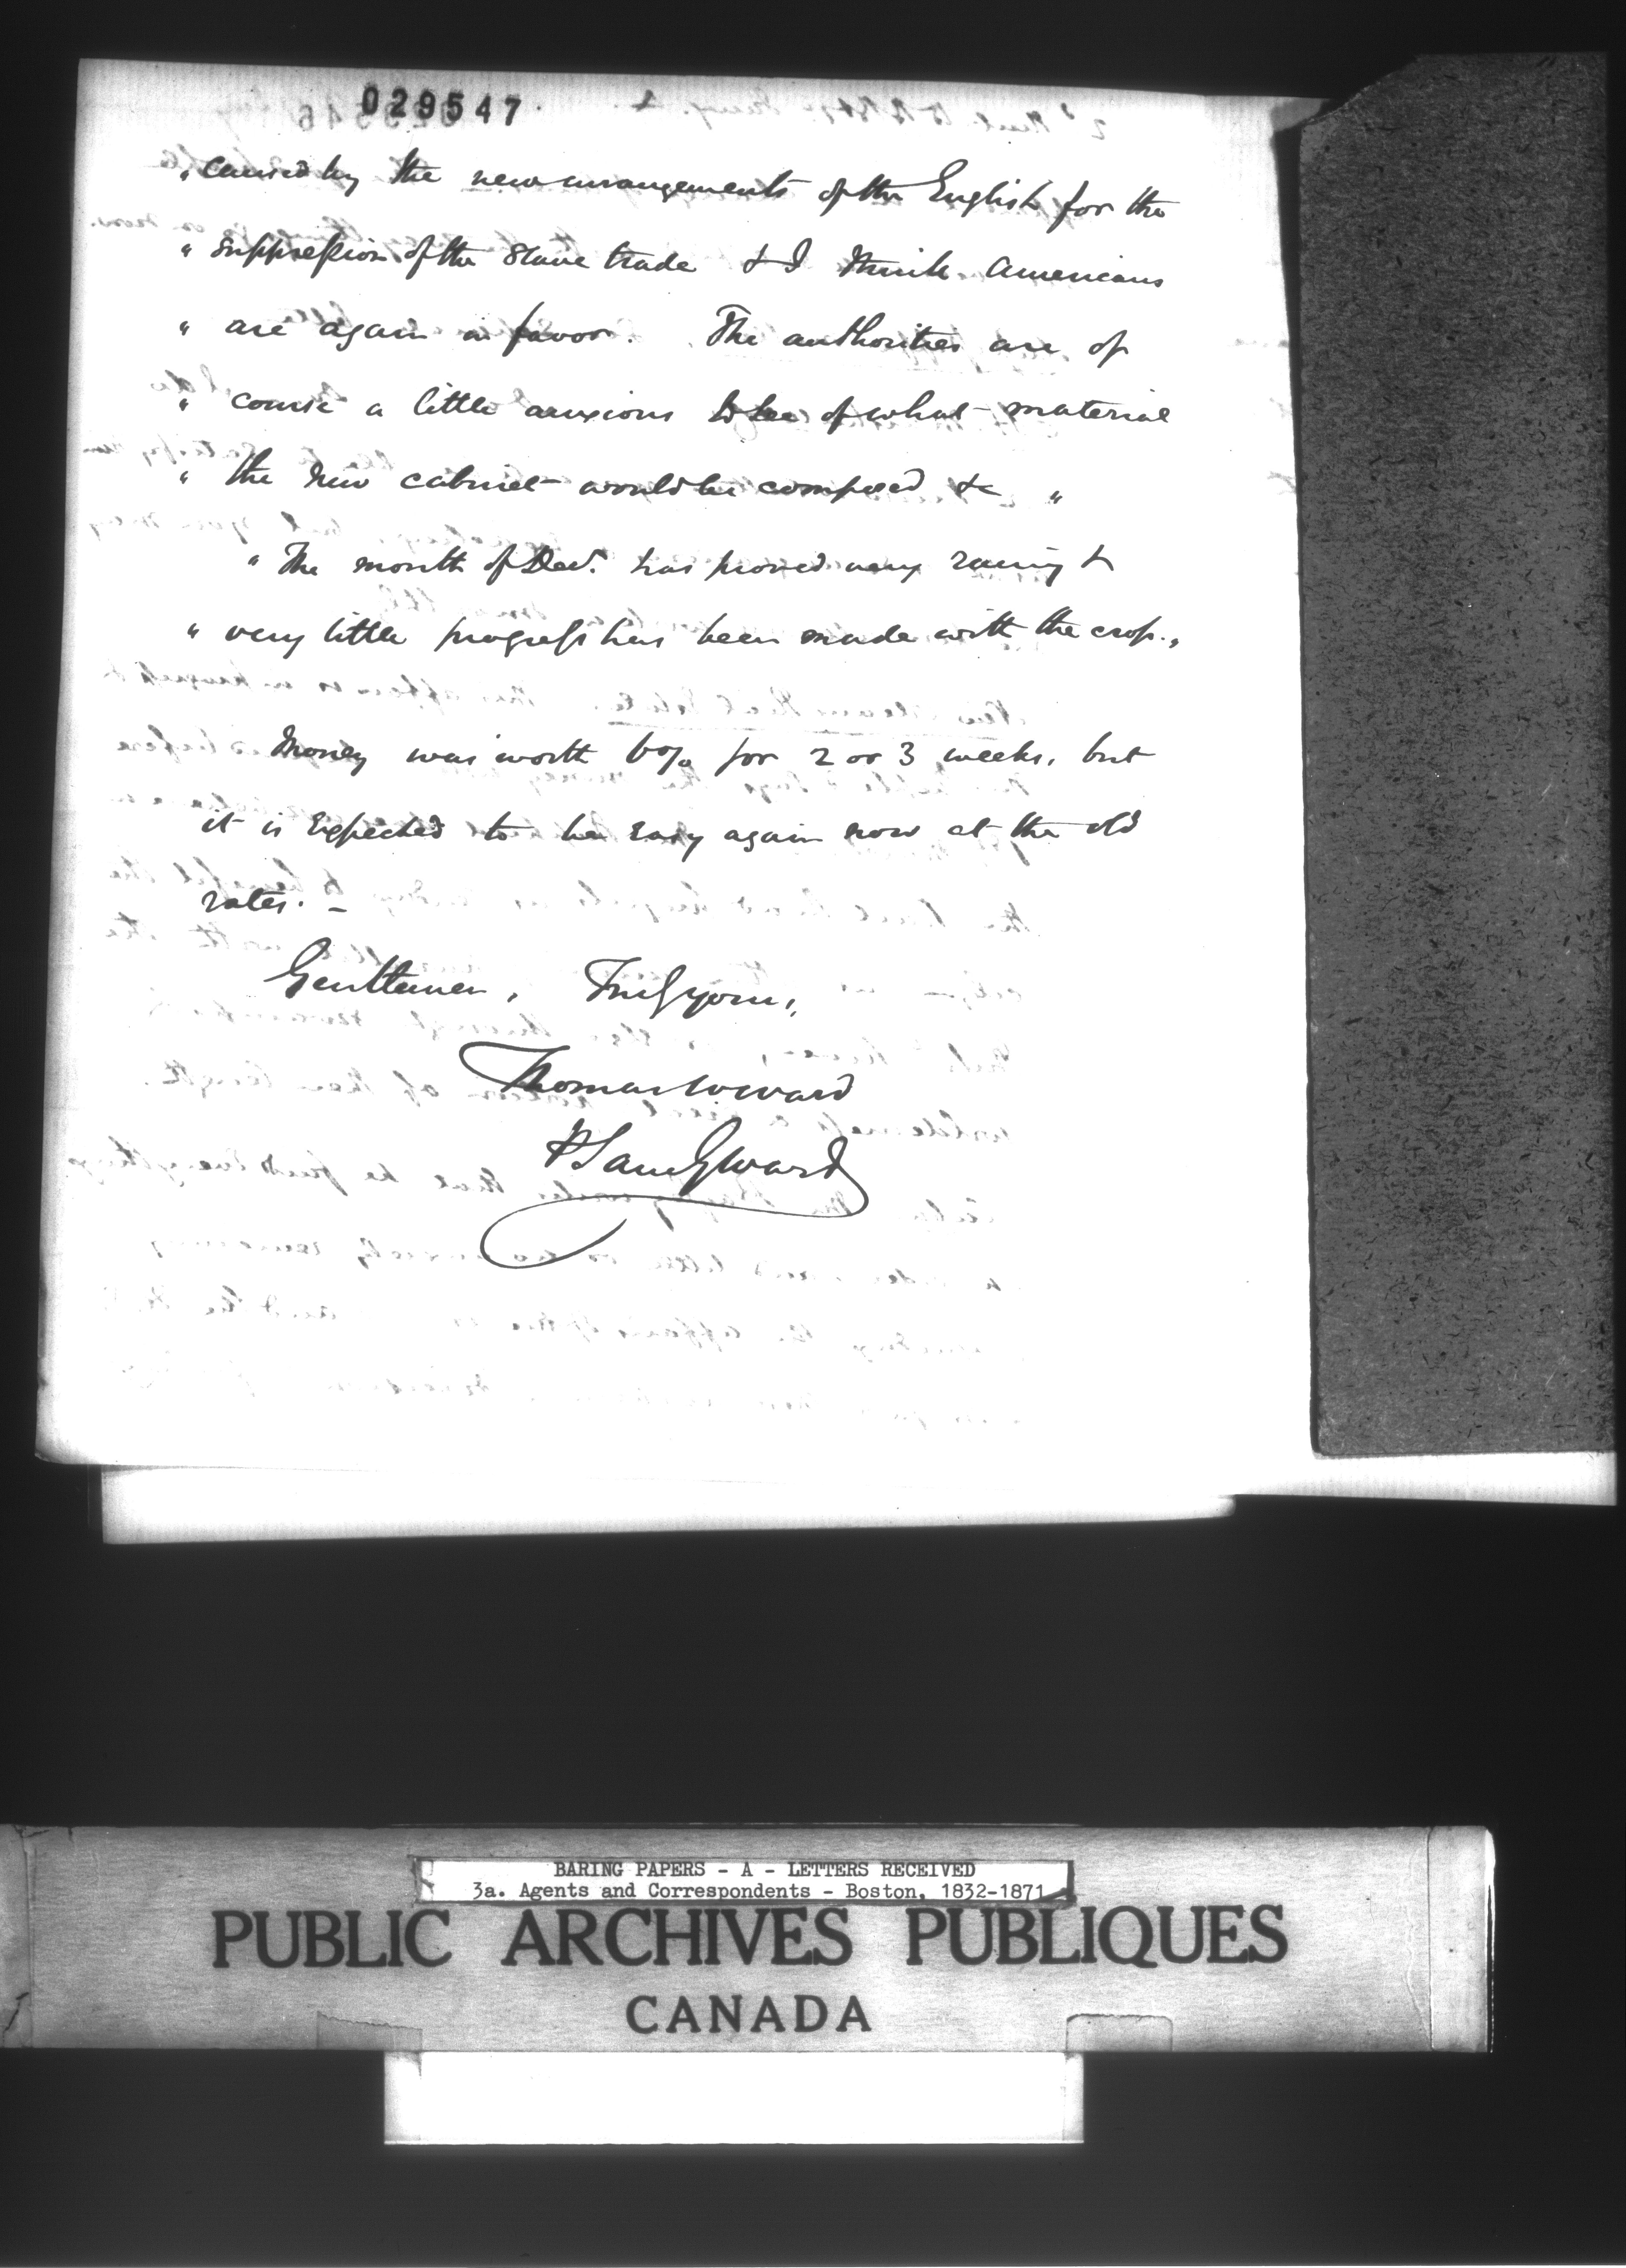 029547
" caused by the new arrangements of the English for the
" suppression of the Slave trade & I think Americans
" are again in favor. The authorities are of
" course a little anxious to see of what material
" the new cabinet would be composed &c "
" The month of Dec. has proved very rainy &
" very little progress has been made with the crop. "
Money was worth 6% for 2 or 3 weeks, but
it is expected to be easy again now at the old
rates. –
Gentlemen, Truly yours,
Thomas W Ward
P Saml G Ward
BARING PAPERS - A - LETTERS RECEIVED
3a. Agents and Correspondents - Boston, 1832-1871
PUBLIC ARCHIVES PUBLIQUES
CANADA